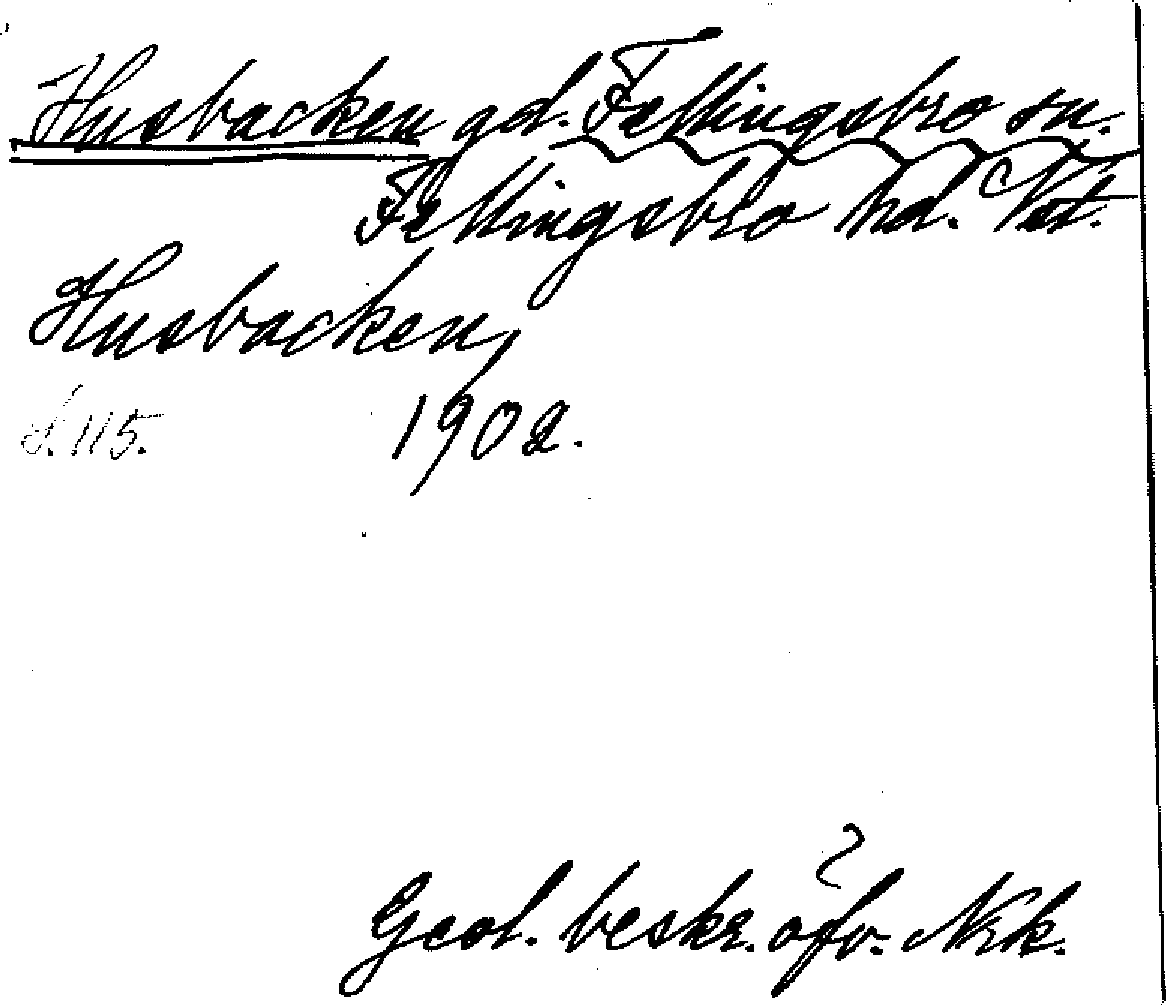 Husbacken gd. Fellingsbro sn.
Fellingsbro hd. Vst.
Husbacken,
S. 115. 1902.
Geol. beskr. öfv. Nrk.